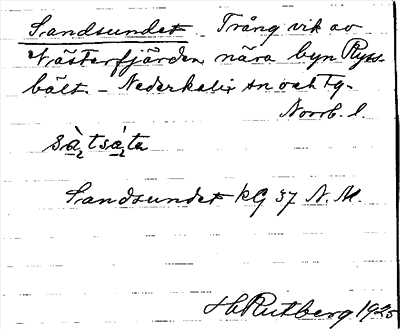 Sandsundet. Trång vik av
Västerfjärden nära byn Ryss-
bält. - Nederkalix sn och tg.
Norrb. l
Sandsundet KG 37 N. M.
H Rutberg 1925